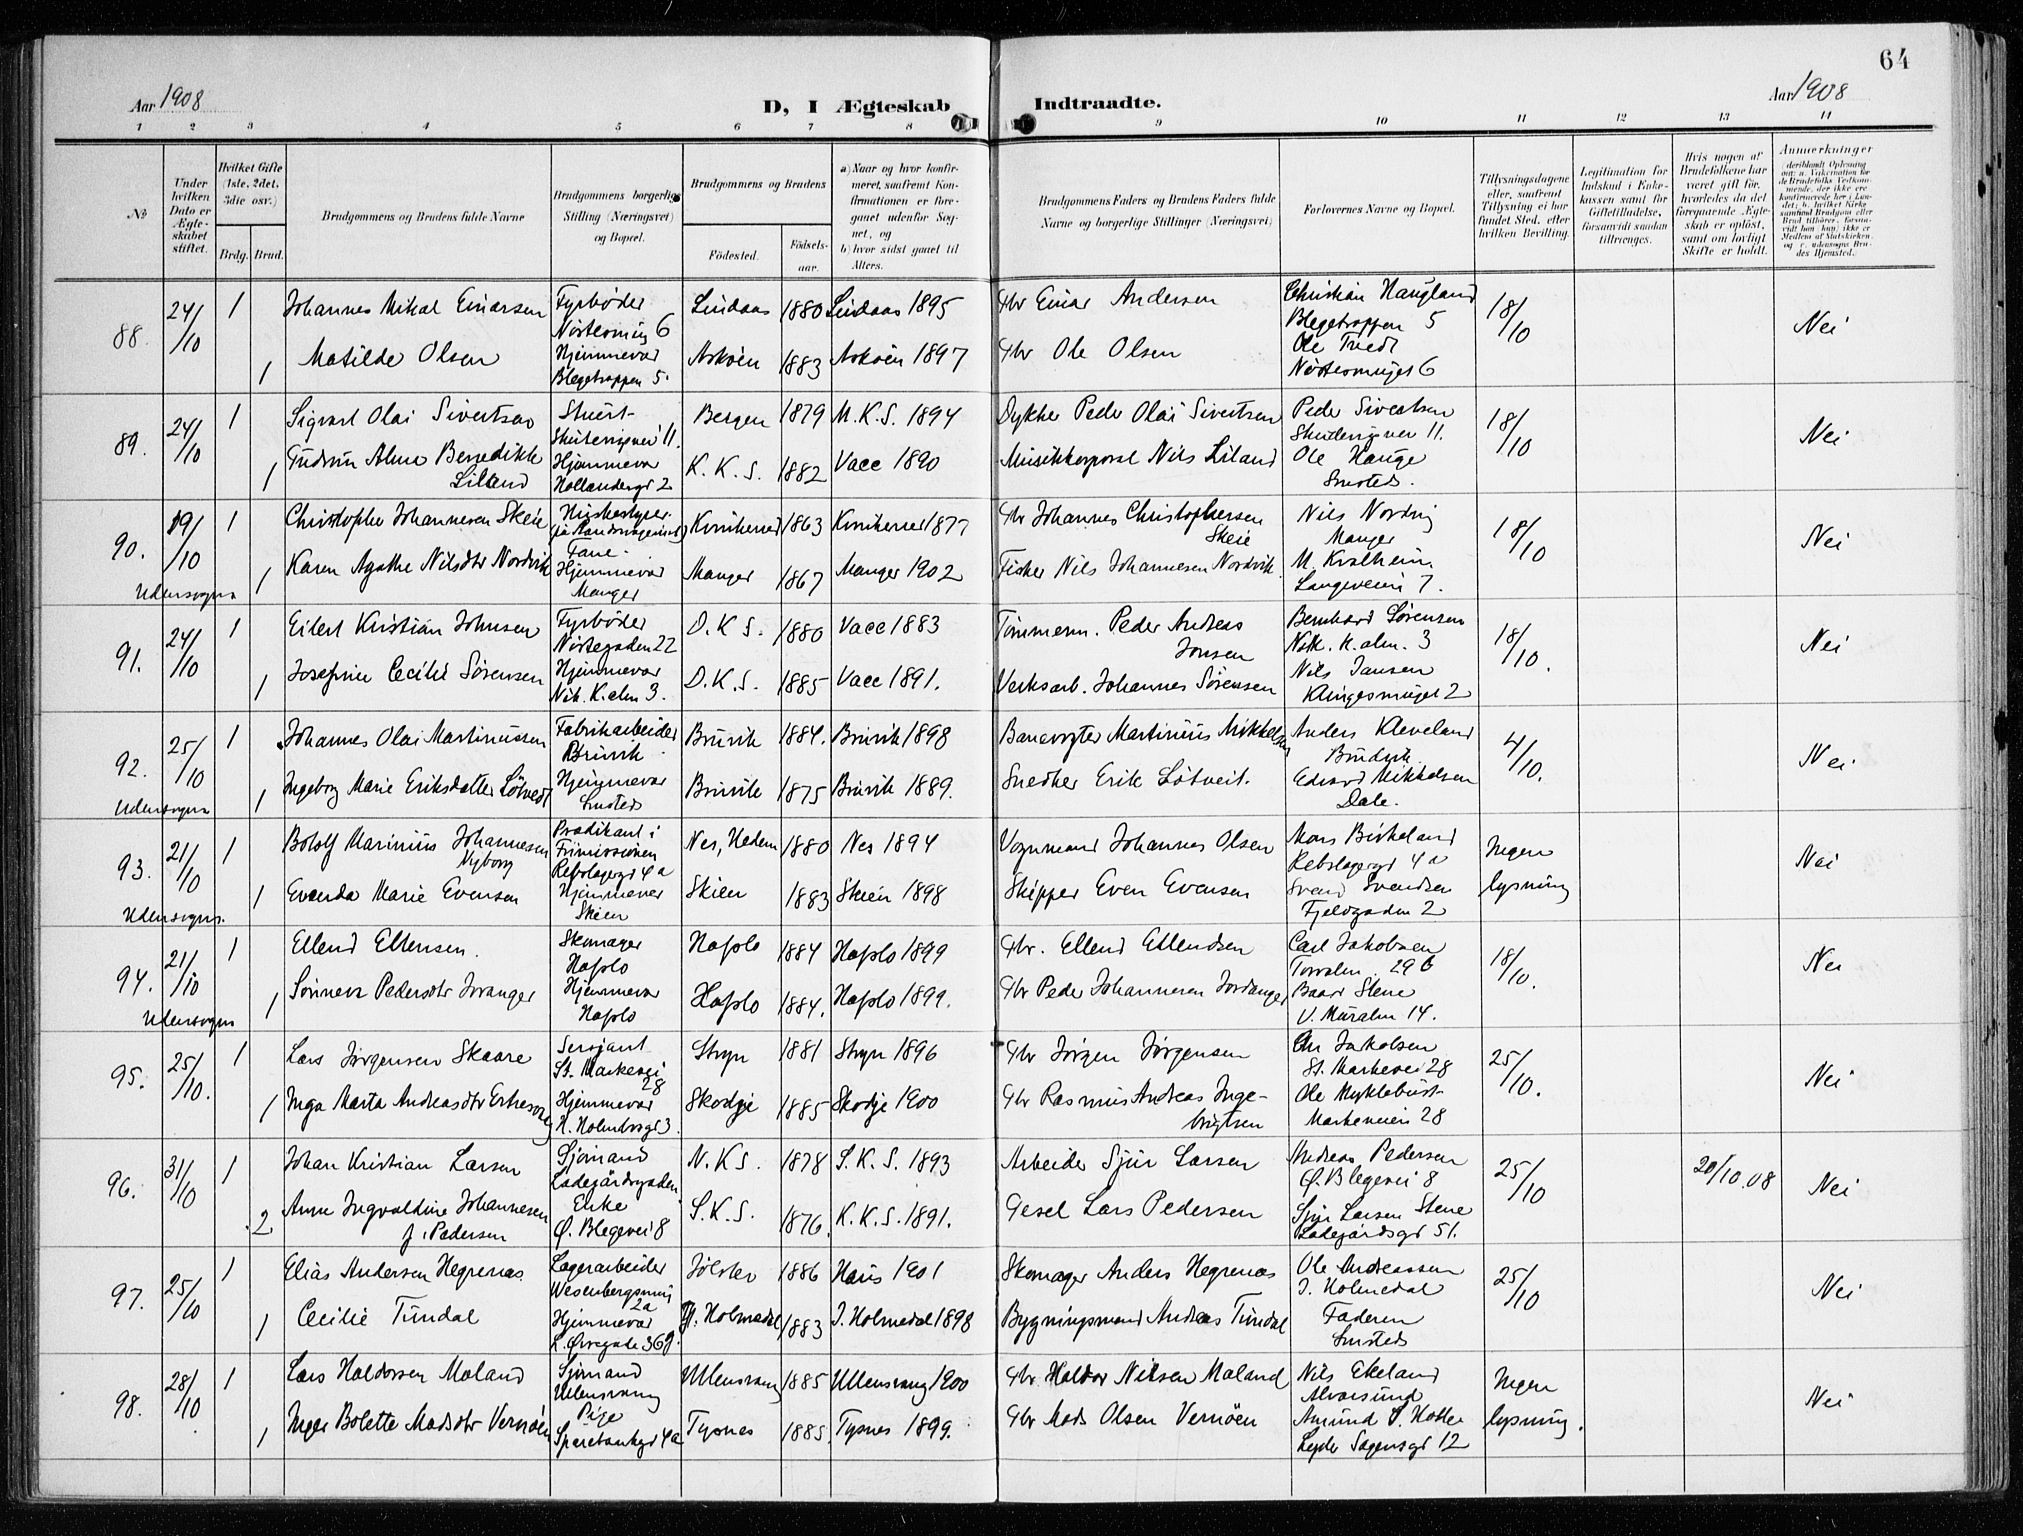 64
Aar 1908
D, I Ægteskab Indtraadte.
Aar 1908
1 2 3 4 5 6 7 8 9 10 11 12 13 14
№
Under hvilken Dato er Ægteskabet stiftet.
Hvilket Gifte (1ste, 2det, 3die osv.)
Brdg. Brud.
Brudgommens og Brudens fulde Navne
Brudgommens borgerlige Stilling (Næringsvei) og Bopæl.
Brudgommens og Brudens
Födested.
Födselsaar.
a) Naar og hvor konfirmeret, saafremt Konfirmationen er foregaaet udenfor Sognet, og
b) hvor sidst gaaet til Alters.
Brudgommens Faders og Brudens Faders fulde Navne og borgerlige Stillinger (Næringsvei)
Forlovernes Navne og Bopæl.
Tillysningsdagene eller, saafremt Tillysning ei har fundet Sted, efter hvilken Bevilling.
Legitimation for Indskud i Enkekassen samt for Giftetilladelse, forsaavidt saadan tiltrænges.
Hvis nogen af Brudefolkene har været gift før, hvorledes da det foregaaende Ægteskab er oplöst, samt om lovligt Skifte er holdt.
Anmærkninger
88. 24/10 1 Johannes Mikal Einarsen Fyrbøder Nøstesmug 6 Lindaas 1880 Lindaas 1895 Gbr Einar Andersen Christian Haugland Blegetrappen 5 18/10 Nei
1 Matilde Olsen Hjemmevær Blegetrappen 5. Askøen 1883 Askøen 1897 Gbr Ole Olsen Ole Tvedt Nøstesmuget 6
89. 24/10 1 Sigvart Olai Sivertsen Stuert Skutevigsvei 11. Bergen 1879 M.K.S. 1894 Dykker Peder Olai Sivertsen Peder Sivertsen Skutevigsvei 11. 18/10 Nei
1 Gudrun Alma Benedikte Liland Hjemmevær Hollændergd 2 K.K.S. 1882 Vacc 1890 Musikkorporal Nils Liland Ole Hauge Smsteds.
90. 19/10 1 Christopher Johannesen Skeie Fane Kvinherred 1863 Kvinherred 1877 Gbr Johannes Christophersen Skeie Nils Nordvig Manger 18/10 Nei
Udensogns 1 Karen Agathe Nilsdtr Nordvik Hjemmevær Manger Manger 1867 Manger 1902 Fisker Nils Johannesen Nordvik M. Kvalheim Langeveien 7.
91. 24/10 1 Eilert Kristian Johnsen Fyrbøder Nøstegaden 22 D.K.S. 1880 Vacc 1883 Tømmerm. Peder Andreas Jonsen Bernhard Sørensen Nik. K. alm. 3 18/10. Nei
1 Josefine Cecilie Sørensen Hjemmevær Nik. K. alm 3. D.K.S. 1885 Vacc 1891. Verksarb. Johannes Sørensen Nils Jansen Klingesmuget 2
92. 25/10 1 Johannes Olai Martinussen Fabrikarbeider Bruvik Bruvik 1884. Bruvik 1898 Banevogter Martinius Mikkelsen Anders Kleveland Bruvik 4/10. Nei
Udensogns 1 Ingeborg Marie Eriksdatter Løtvedt Hjemmevær Smsteds Bruvik 1875 Bruvik 1889. Snedker Erik Løtveit. Edvard Mikkelsen Dale.
93. 21/10 1 Botolf Marinius Johannesen Nyborg Prædikant i Frimissionen Rebslagergd 4a Nes, Hedem 1880 Nes 1894 Vognmand Johannes Olsen Mons Birkeland Rebslagergd 4a Ingen lysning Nei
Udensogns. 1 Evanda Marie Evensen Hjemmevær Skien Skien 1883 Skien 1898 Skipper Even Evensen Svend Svendsen Fjeldgaden 2
94. 21/10 1 Ellend Ellensen. Skomager Hafslo Hafslo 1884 Hafslo 1899 Gbr. Ellend Ellendsen Carl Jakobsen Torvalm. 29 b 18/10. Nei
Udensogns 1 Sønneva Pedersdtr Joranger Hjemmevær Hafslo Hafslo 1884. Hafslo 1899. Gbr Peder Johannesen Joranger Baard Stene V. Muralm 14.
95. 25/10. 1 Lars Jørgensen Skaare Sersjant St. Markevei 28 Stryn 1881 Stryn 1896 Gbr Jørgen Jørgensen Jakobsen St. Markevei 28 25/10. Nei
1 Inga Marta Andreasdtr Hjemmevær H. Holmbosgd 3. Skodje 1885 Skodje 1900 Gbr Rasmus Andreas Ingebrigtsen Ole Myklebust Markeveien 28
96. 31/10 1 Johan Kristian Larsen Sjømand Ladegårdsgaden N.K.S. 1878 S.K.S. 1893 Arbeider Sjur Larsen Andreas Pedersen Ø. Blegevei 8 25/10 20/10.08 Nei
2 Anne Ingvaldine Johannesen f. Pedersen Enke Ø. Blegevei 8 S.K.S. 1876. K.K.S. 1891. Gesel Lars Pedersen Sjur Larsen Stene Ladegårdsgd 51.
97. 25/10 1 Elias Andersen Hegrenæs Lagerarbeider Wesenbergsmug 2a Jølster 1886 Haus 1901 Skomager Anders Hegrenæs Ole Andreassen I. Holmedal 25/10 Nei
1 Cecilie Tundal Hjemmevær L. Øvregade 36 I. Holmedal 1883 I. Holmedal 1898 Bygningsmand Andreas Tundal Faderen Smsteds
98. 28/10 1 Lars Haldorsen Maland Sjømand Ullensvang Ullensvang 1885 Ullensvang 1900 Gbr Haldor Nilsen Maland Nils Ekeland Alversund Ingen lysning. Nei
1 Inger Bolette Madsdtr Vernøen Pige Sparebankgd 4a Tysnes 1885. Tysnes 1899. Gbr Mads Olsen Vernøen Amund Lyder Sagensgd 12